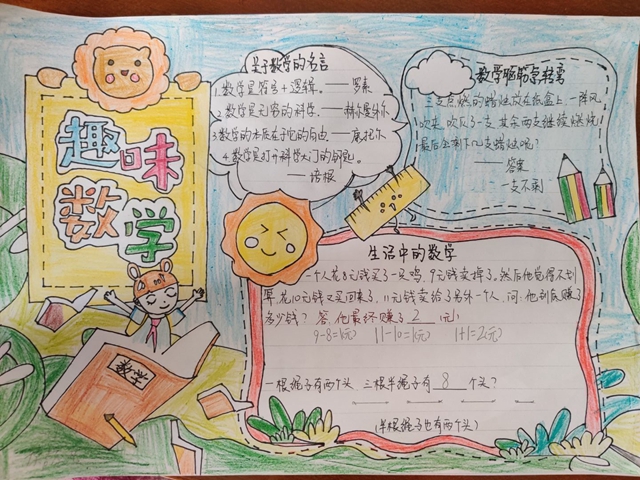 趣味
数学
关于数学的名言
1.数学是符号+逻辑。——罗素
2.数学是无穷的科学。——赫尔曼外尔
3.数学的本质在于它的自由。——康托尔
4.数学是打开科学大门的钥匙。
——培根
数学脑筋急转弯
三支点燃的蜡烛放在纸盒上,一阵风
吹来,吹灭了一支,其余两支继续燃烧,
最后会剩下几支蜡烛呢?
——答案
一支不剩
生活中的数学
一个人花8元钱买了一只鸡,9元钱卖掉了,然后他觉得不划
算,花10元钱又买回来了,11元钱卖给了另外一个人,问:他到底赚了
多少钱?答:他最终赚了2(元)
9-8=1(元) 11-10=1(元) 1+1=2(元)
一根绳子有两个头,三根半绳子有8个头?
(半根绳子也有两个头)
数学